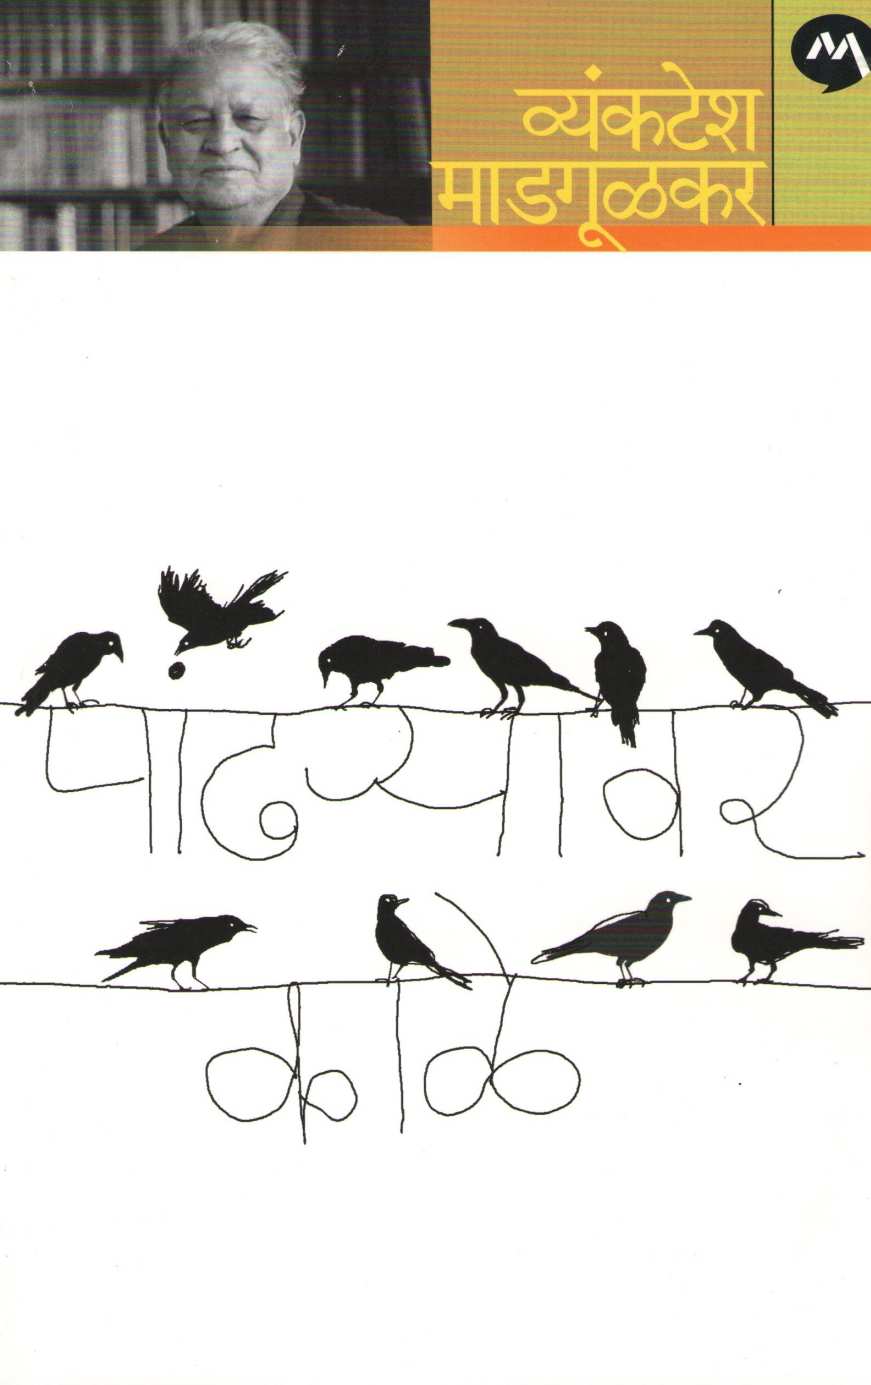 व्यंकटेश
माडगूळकर
पांढऱ्यावर
काळे